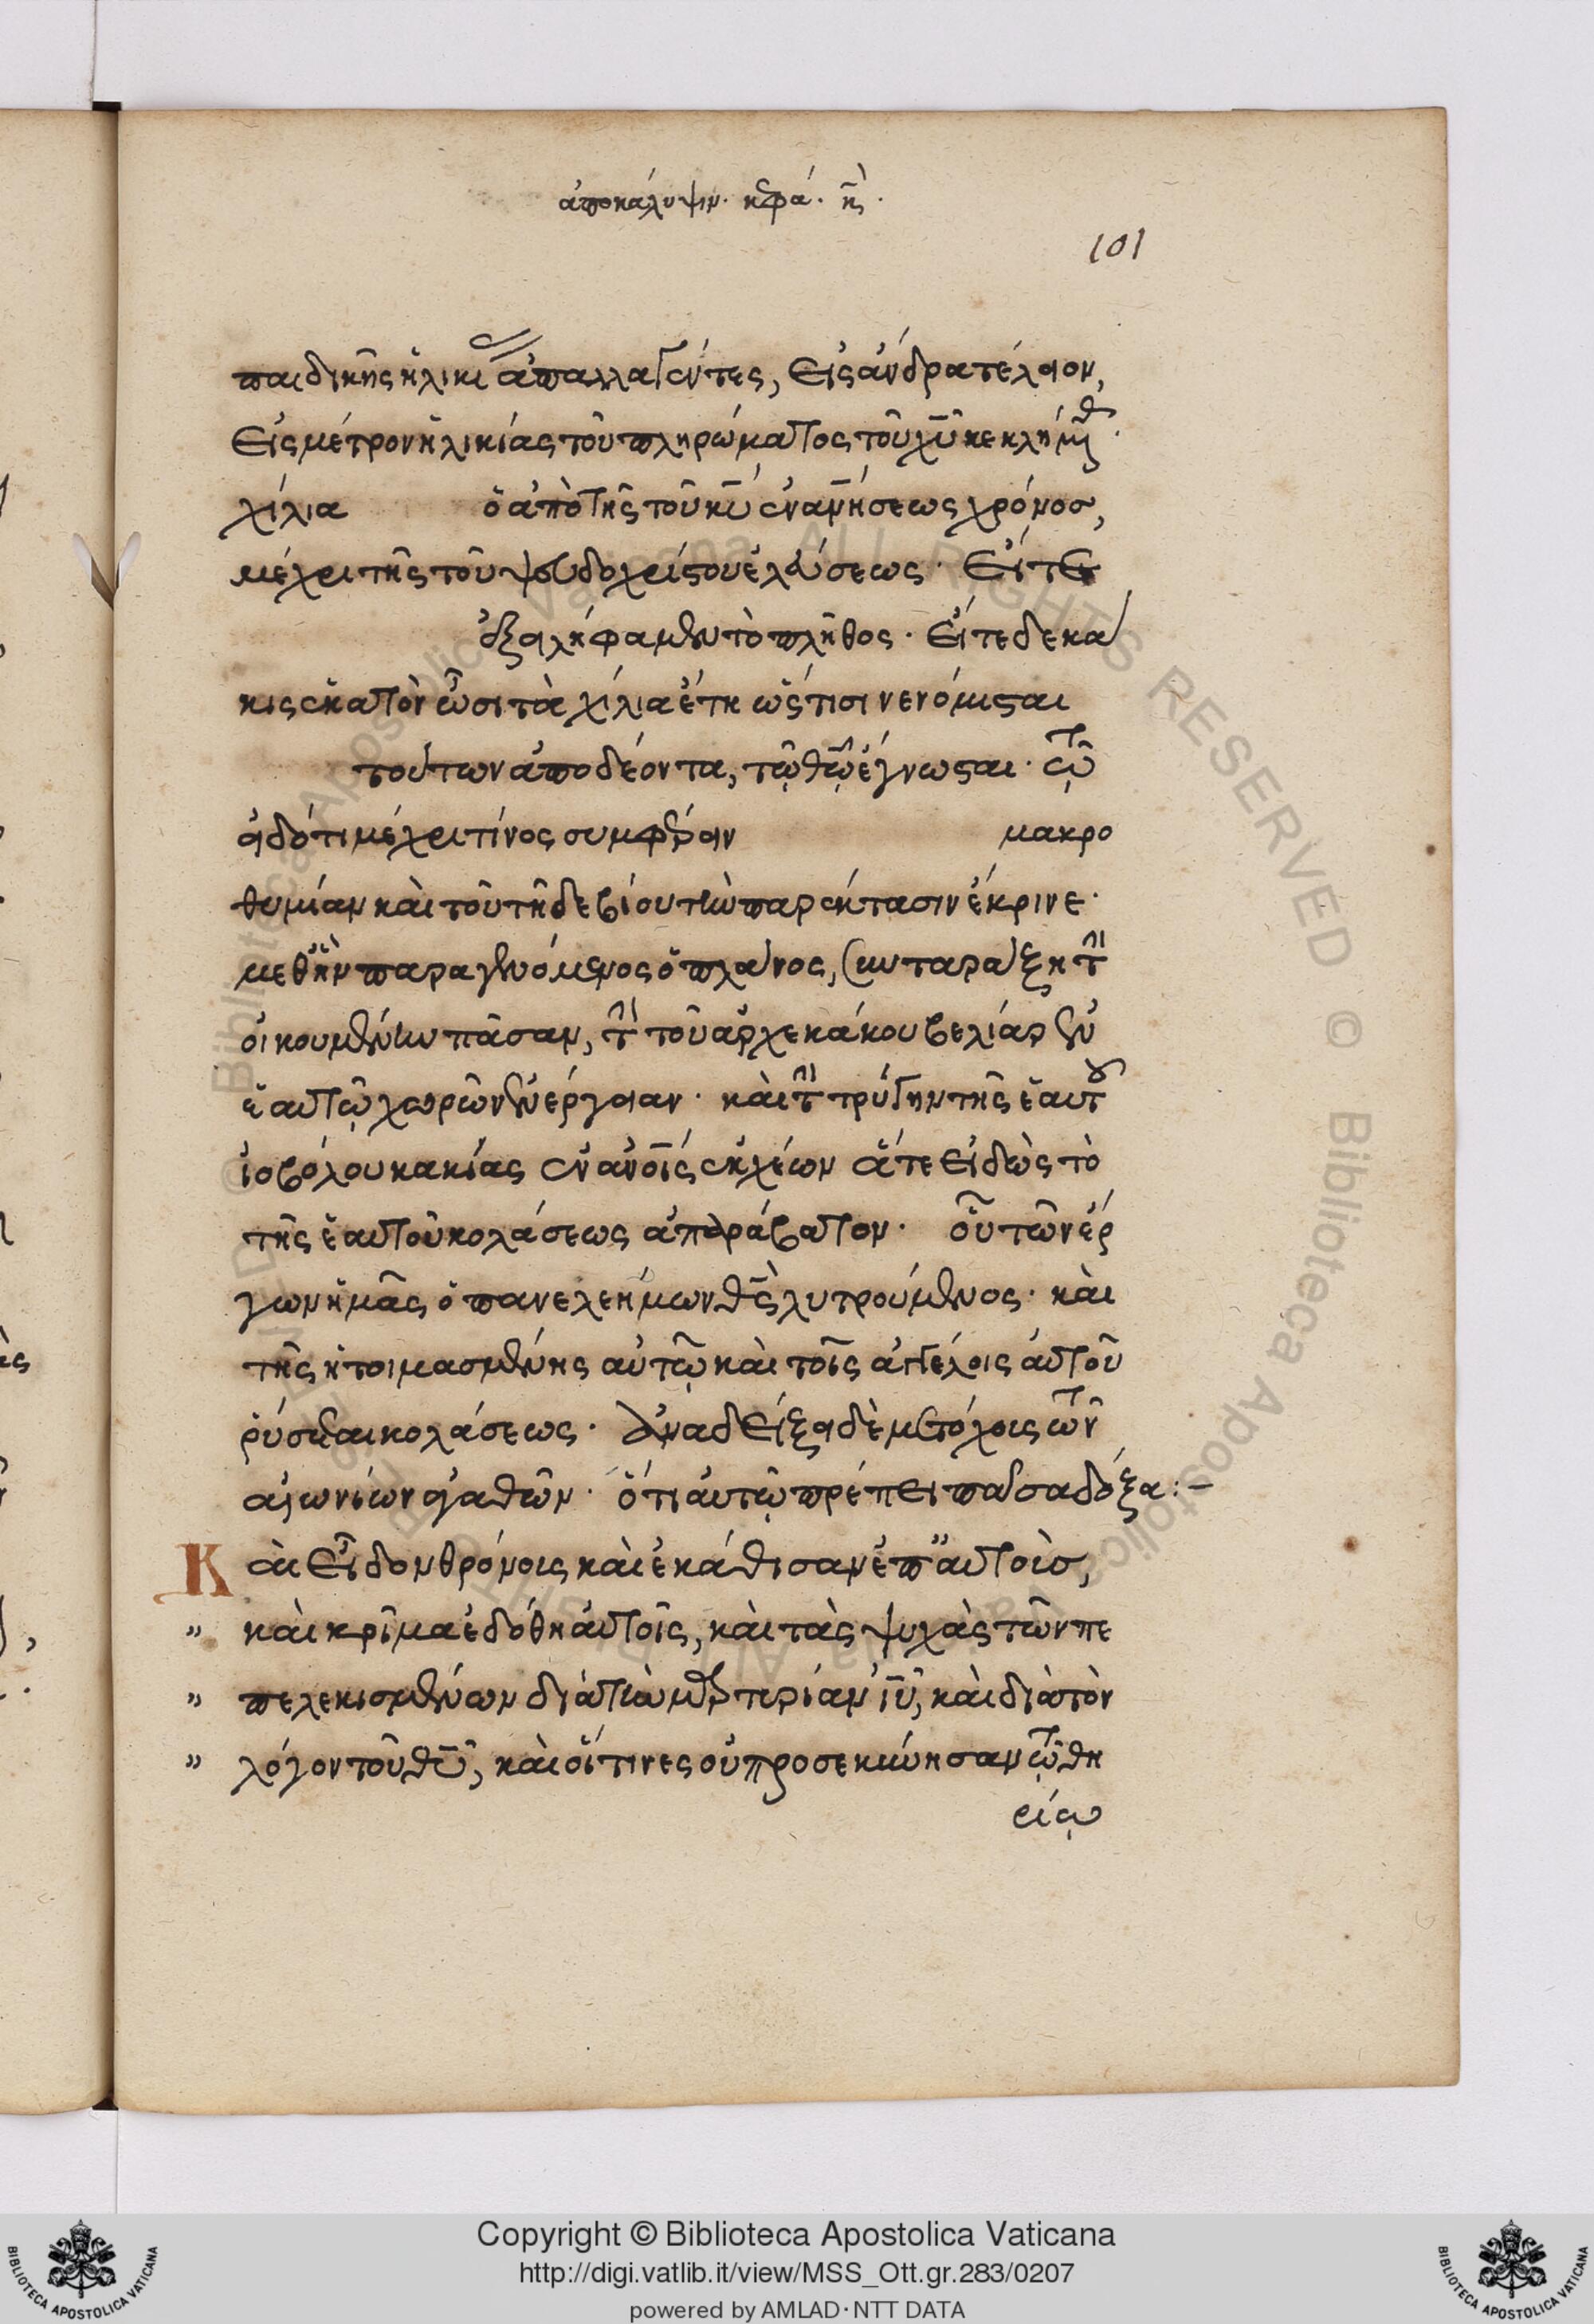 ἀποκάλυψιν. κεφά. κ̅ς̀.
101
παιδικῆς ἡλικί ἀπαλλαγέντες, εἰς ἄνδρα τέλειον,
εἰς μέτρον ἡλικίας τοῦ πληρώματος τοῦ χ̅υ̅ κεκλήμεθ.
χίλια ὁ ἀπὸ τῆς τοῦ κ̅υ̅ ἐναν̅ήσεως χρόνοσ,
μέχρι τῆς τοῦ ψευδοχρίστου ἐλεύσεως. εἴτε
ἐξειλήφαμεν τὸ πλῆθος. εἴτε δεκα
κις ἑκατὸν ὦσι τὰ χίλια ἔτη ὥς τισι νενόμισται
τούτων ἀποδέοντα, τῷ θ̅ῷ ἔγνωσται. τῷ
εἰδότι μέχρι τίνος συμφέρειν μακρο
θυμίαν καὶ τοῦ τῇδε βίου τὴν παρέκτασιν ἔκρινε.
μεθ' ἣν παραγενόμενος ὁ πλάνος, συνταράξη τὴν
οἰκουμένην πᾶσαν, τὴν τοῦ ἀρχεκάκου βελίαρ ἐν
ἑαυτῷ χωρῶν ἐνέργειαν. καὶ τὴν τρύγην τῆς ἑαυτοῦ
ἰοβόλου κακίας ἐν ἀν̅οις ἐκχέων ἅτε εἰδὼς τὸ
τῆς ἑαυτοῦ κολάσεως ἀπαράβατον. οὗ τῶν ἔρ
γων ἡμᾶς ὁ πανελεήμων θ̅ς̀ λυτρούμενος. καὶ
τῆς ἡτοιμασμένης αὐτῷ καὶ τοῖς ἀγγέλοις αὐτοῦ
ῥύσεται κολάσεως. ἀναδείξει δὲ μετόχοις τῶν
αἰωνίων ἀγαθῶν. ὅτι αὐτῷ πρέπει πᾶσα δόξα:-
Καὶ εἶδον θρόνοις καὶ ἐκάθισαν ἐπ' αὐτοὺσ,
" καὶ κρῖμα ἐδόθη αὐτοῖς, καὶ τὰς ψυχὰς τῶν πε
" πελεκισμένων διὰ τὴν μαρτυρίαν ἰ̅υ̅, καὶ διὰ τὸν
" λόγον τοῦ θ̅υ̅, καὶ οἵτινες οὐ προσεκύνησαν τῷ θη
ρίῳ
Copyright © Biblioteca Apostolica Vaticana
http://digi.vatlib.it/view/MSS_Ott.gr.283/0207
powered by AMLAD·NTT DATA